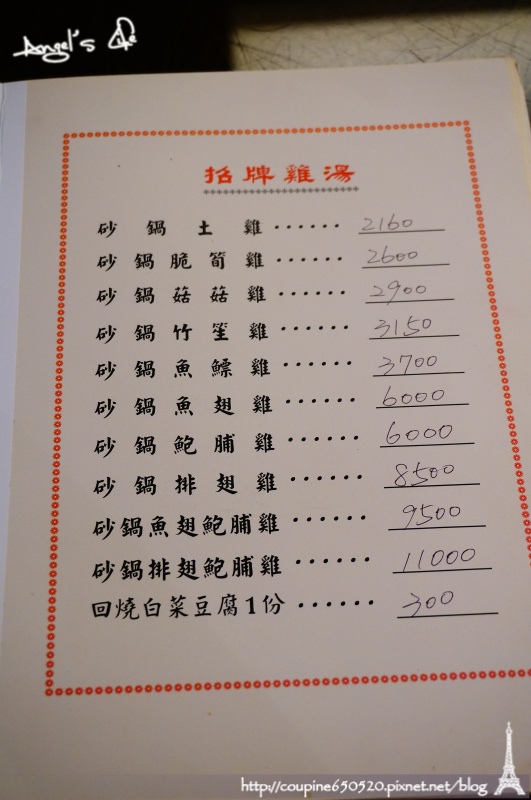 Angel's Life
招牌雞湯
砂鍋土雞······2160
砂鍋脆筍雞······2600
砂鍋菇菇雞······2900
砂鍋竹笙雞······3150
砂鍋魚鰾雞······3700
砂鍋魚翅雞······6000
砂鍋鮑脯雞······6000
砂鍋排翅雞······8500
砂鍋魚翅鮑脯雞······9500
砂鍋排翅鮑脯雞······11000
回燒白菜豆腐1份······300
http://coupine650520.pixnet.net/blog